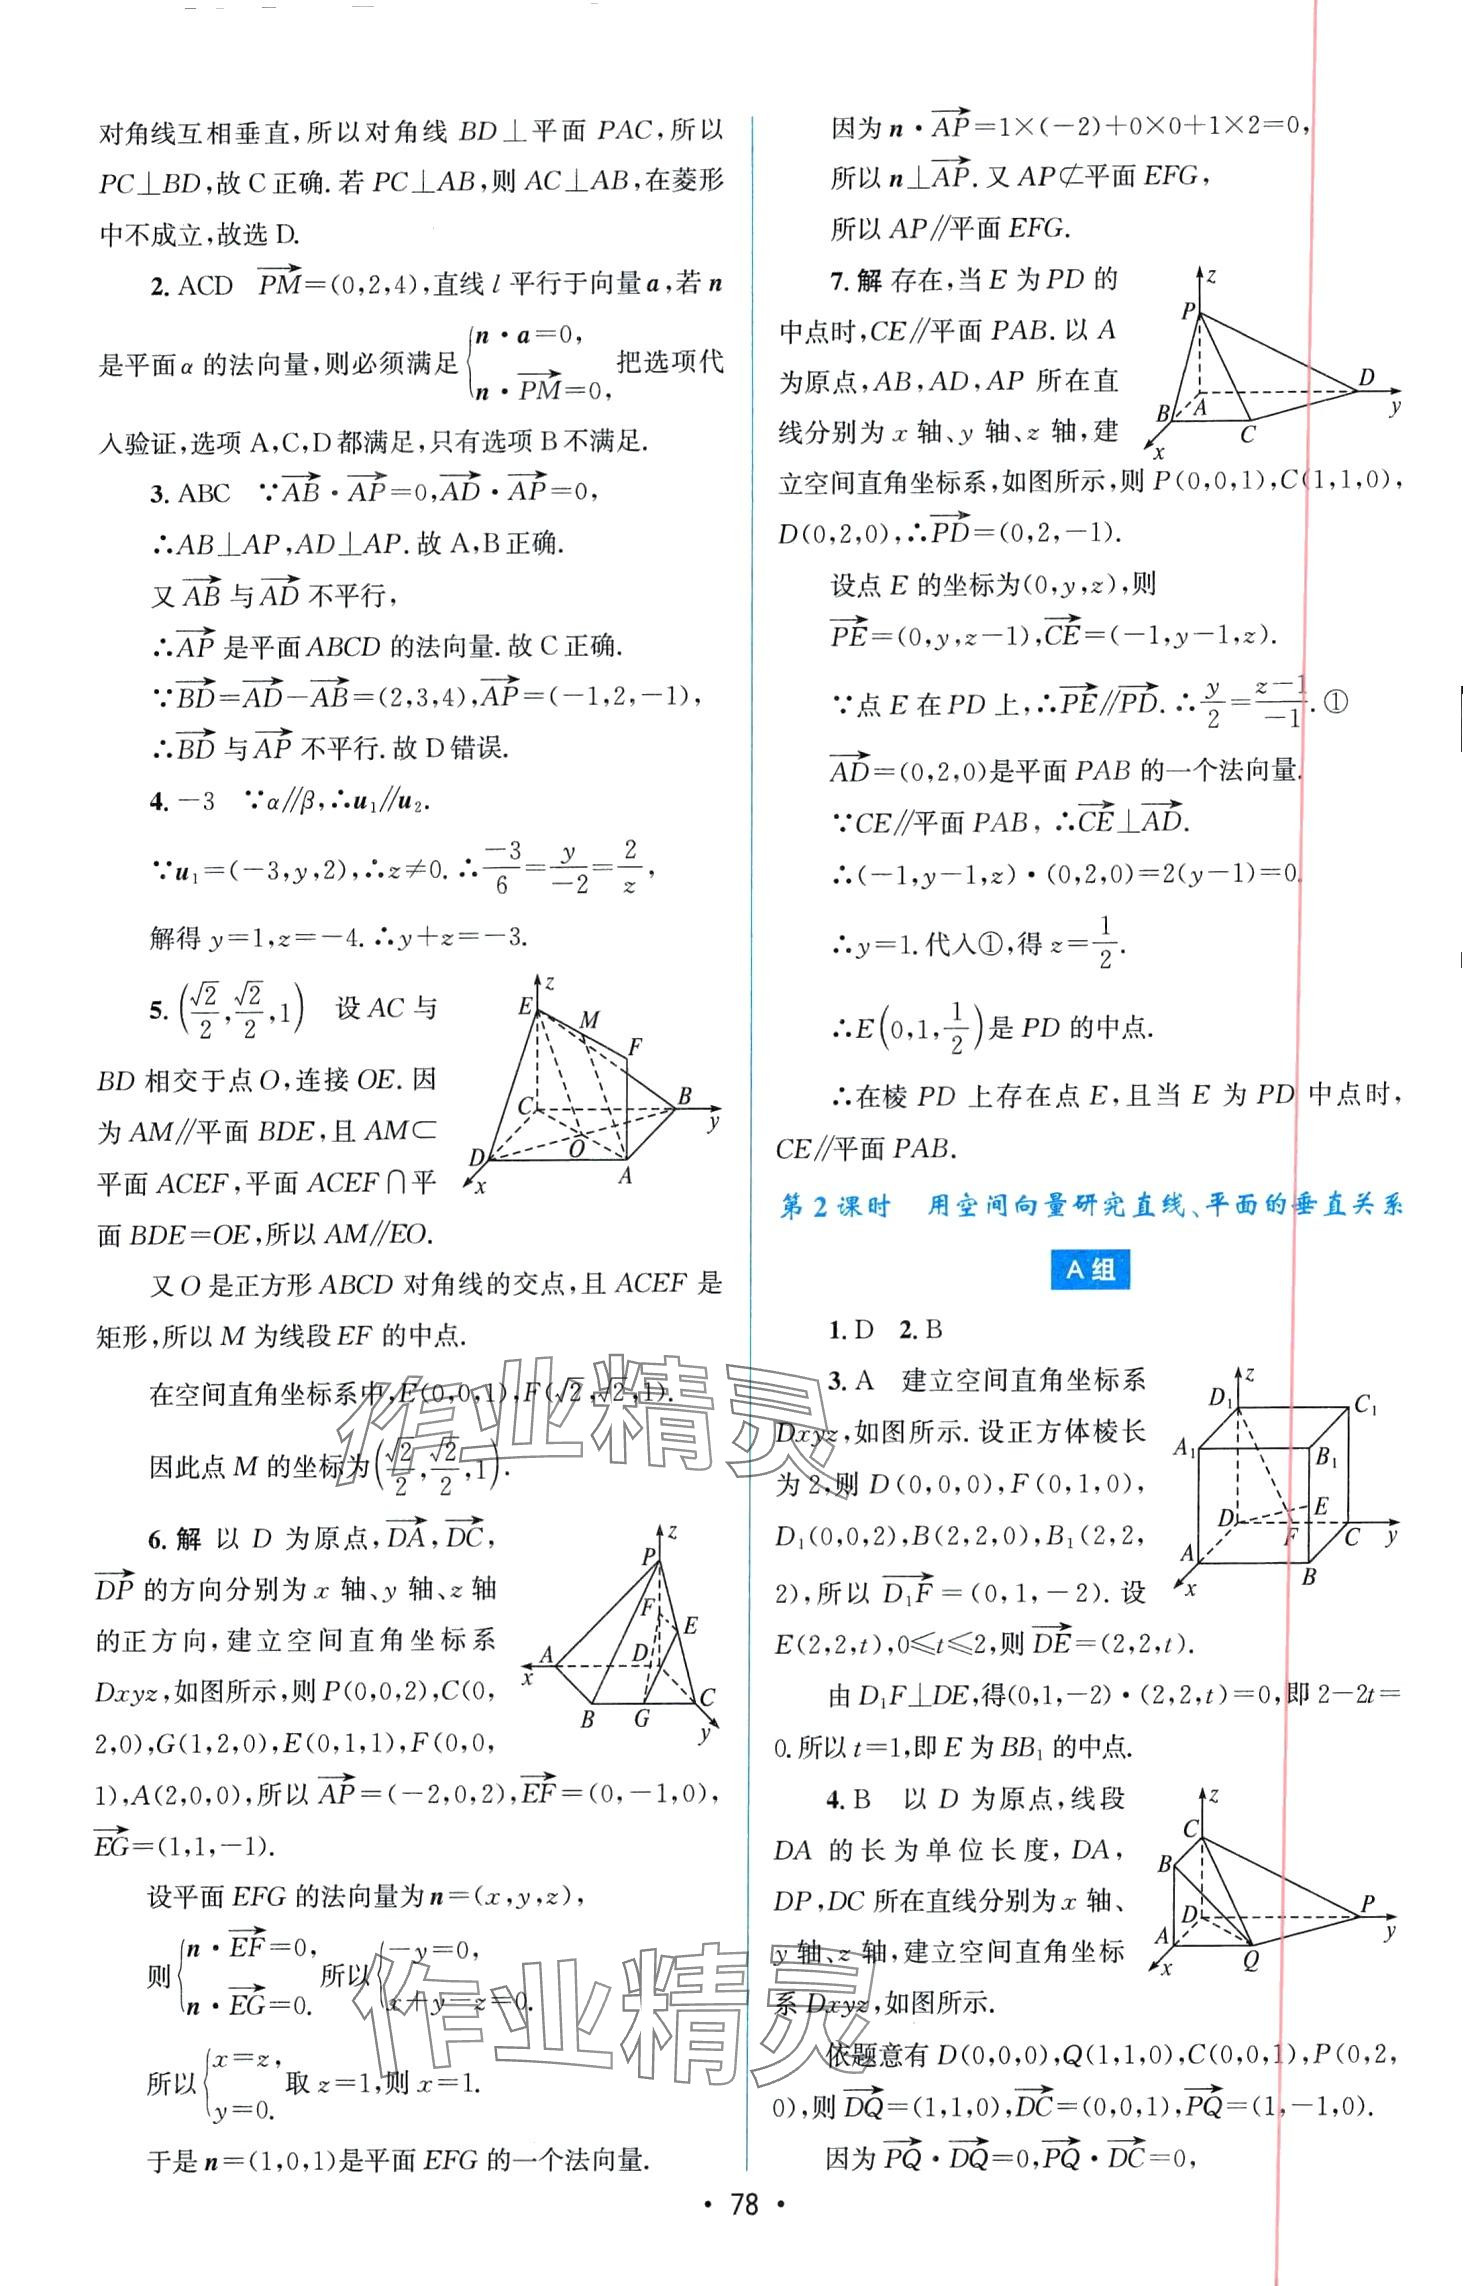 对角线互相垂直,所以对角线 BD⊥平面 PAC,所以
PC⊥BD,故 C 正确. 若 PC⊥AB,则 AC⊥AB,在菱形
中不成立,故选 D.
2. ACD $\overrightarrow{PM}$=(0,2,4),直线 l 平行于向量 a,若 n
是平面 α 的法向量,则必须满足 $\begin{cases} n·a=0, \\ n·\overrightarrow{PM}=0, \end{cases}$ 把选项代
入验证,选项 A,C,D 都满足,只有选项 B 不满足.
3. ABC ∵$\overrightarrow{AB}$·$\overrightarrow{AP}$=0,$\overrightarrow{AD}$·$\overrightarrow{AP}$=0,
∴AB⊥AP,AD⊥AP. 故 A,B 正确.
又 $\overrightarrow{AB}$ 与 $\overrightarrow{AD}$ 不平行,
∴$\overrightarrow{AP}$ 是平面 ABCD 的法向量. 故 C 正确.
∵$\overrightarrow{BD}$=$\overrightarrow{AD}$-$\overrightarrow{AB}$=(2,3,4),$\overrightarrow{AP}$=(-1,2,-1),
∴$\overrightarrow{BD}$ 与 $\overrightarrow{AP}$ 不平行. 故 D 错误.
4. -3 ∵α∥β,∴u₁∥u₂.
∵u₁=(-3,y,2),∴z≠0. ∴$\frac{-3}{6}=\frac{y}{-2}=\frac{2}{z}$,
解得 y=1,z=-4. ∴y+z=-3.
5. $\left(\frac{\sqrt{2}}{2},\frac{\sqrt{2}}{2},1\right)$ 设 AC 与
BD 相交于点 O,连接 OE. 因
为 AM∥平面 BDE,且 AM⊂
平面 ACEF,平面 ACEF∩平
面 BDE=OE,所以 AM∥EO.
z
E
M
F
C
B
y
D
O
x
A
又 O 是正方形 ABCD 对角线的交点,且 ACEF 是
矩形,所以 M 为线段 EF 的中点.
在空间直角坐标系中,E(0,0,1),F($\sqrt{2}$,$\sqrt{2}$,1).
因此点 M 的坐标为 $\left(\frac{\sqrt{2}}{2},\frac{\sqrt{2}}{2},1\right)$.
6. 解 以 D 为原点,$\overrightarrow{DA}$,$\overrightarrow{DC}$,
$\overrightarrow{DP}$ 的方向分别为 x 轴、y 轴、z 轴
的正方向,建立空间直角坐标系
Dxyz,如图所示,则 P(0,0,2),C(0,
2,0),G(1,2,0),E(0,1,1),F(0,0,
1),A(2,0,0),所以 $\overrightarrow{AP}$=(-2,0,2),$\overrightarrow{EF}$=(0,-1,0),
$\overrightarrow{EG}$=(1,1,-1).
z
P
F
E
A
D
x
C
B
G
y
设平面 EFG 的法向量为 n=(x,y,z),
则 $\begin{cases} n·\overrightarrow{EF}=0, \\ n·\overrightarrow{EG}=0. \end{cases}$ 所以 $\begin{cases} -y=0, \\ x+y-z=0. \end{cases}$
所以 $\begin{cases} x=z, \\ y=0. \end{cases}$ 取 z=1,则 x=1.
于是 n=(1,0,1)是平面 EFG 的一个法向量.
因为 n·$\overrightarrow{AP}$=1×(-2)+0×0+1×2=0,
所以 n⊥$\overrightarrow{AP}$. 又 AP⊄平面 EFG,
所以 AP∥平面 EFG.
7. 解 存在,当 E 为 PD 的
中点时,CE∥平面 PAB. 以 A
为原点,AB,AD,AP 所在直
线分别为 x 轴、y 轴、z 轴,建
立空间直角坐标系,如图所示,则 P(0,0,1),C(1,1,0),
D(0,2,0),∴$\overrightarrow{PD}$=(0,2,-1).
z
P
D
B
A
y
C
x
设点 E 的坐标为(0,y,z),则
$\overrightarrow{PE}$=(0,y,z-1),$\overrightarrow{CE}$=(-1,y-1,z).
∵点 E 在 PD 上,∴$\overrightarrow{PE}$∥$\overrightarrow{PD}$. ∴$\frac{y}{2}=\frac{z-1}{-1}$. ①
$\overrightarrow{AD}$=(0,2,0)是平面 PAB 的一个法向量.
∵CE∥平面 PAB, ∴$\overrightarrow{CE}$⊥$\overrightarrow{AD}$.
∴(-1,y-1,z)·(0,2,0)=2(y-1)=0.
∴y=1. 代入①,得 z=$\frac{1}{2}$.
∴E$\left(0,1,\frac{1}{2}\right)$是 PD 的中点.
∴在棱 PD 上存在点 E,且当 E 为 PD 中点时,
CE∥平面 PAB.
第 2 课时 用空间向量研究直线、平面的垂直关系
A 组
1. D 2. B
3. A 建立空间直角坐标系
Dxyz,如图所示. 设正方体棱长
为 2,则 D(0,0,0),F(0,1,0),
D₁(0,0,2),B(2,2,0),B₁(2,2,
2),所以 $\overrightarrow{D_1F}$=(0,1,-2). 设
E(2,2,t),0≤t≤2,则 $\overrightarrow{DE}$=(2,2,t).
z
D₁
C₁
A₁
B₁
D
E
F
C
y
A
x
B
由 D₁F⊥DE,得(0,1,-2)·(2,2,t)=0,即 2-2t=
0. 所以 t=1,即 E 为 BB₁ 的中点.
4. B 以 D 为原点,线段
DA 的长为单位长度,DA,
DP,DC 所在直线分别为 x 轴、
y 轴、z 轴,建立空间直角坐标
系 Dxyz,如图所示.
z
C
B
D
P
y
A
x
Q
依题意有 D(0,0,0),Q(1,1,0),C(0,0,1),P(0,2,
0),则 $\overrightarrow{DQ}$=(1,1,0),$\overrightarrow{DC}$=(0,0,1),$\overrightarrow{PQ}$=(1,-1,0).
因为 $\overrightarrow{PQ}$·$\overrightarrow{DQ}$=0,$\overrightarrow{PQ}$·$\overrightarrow{DC}$=0,
· 78 ·
作业精灵
作业精灵